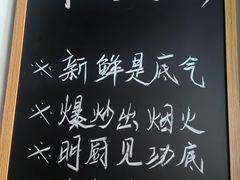 ※新鲜是底气
※爆炒出烟火
※明厨见功底